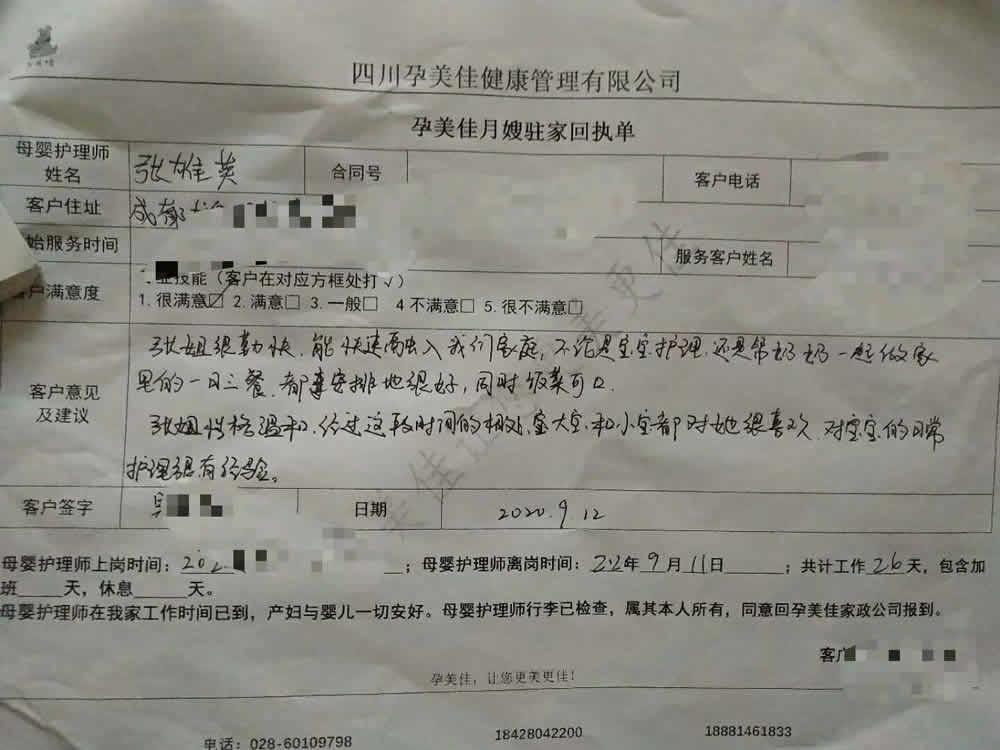 四川孕美佳健康管理有限公司
孕美佳月嫂驻家回执单
母婴护理师姓名 张雄英 合同号 客户电话
客户住址 成都
始服务时间 服务客户姓名
客户满意度 业技能（客户在对应方框处打√）
1. 很满意☑ 2. 满意□ 3. 一般□ 4 不满意□ 5. 很不满意□
客户意见及建议
张姐很勤快，能快速融入我们家庭，不论是宝宝护理，还是帮奶奶一起做家
里的一日三餐，都安排地很好，同时饭菜可口.
张姐性格温和，经过这段时间的相处，大宝和小宝都对她很喜欢，对宝宝的日常
护理很有经验。
客户签字 吴 日期 2020.9.12
母婴护理师上岗时间：202 ；母婴护理师离岗时间：2020年9月11日 ；共计工作 26 天，包含加
班 天，休息 天。
母婴护理师在我家工作时间已到，产妇与婴儿一切安好。母婴护理师行李已检查，属其本人所有，同意回孕美佳家政公司报到。
客户
孕美佳，让您更美更佳！
电话：028-60109798 18428042200 18881461833